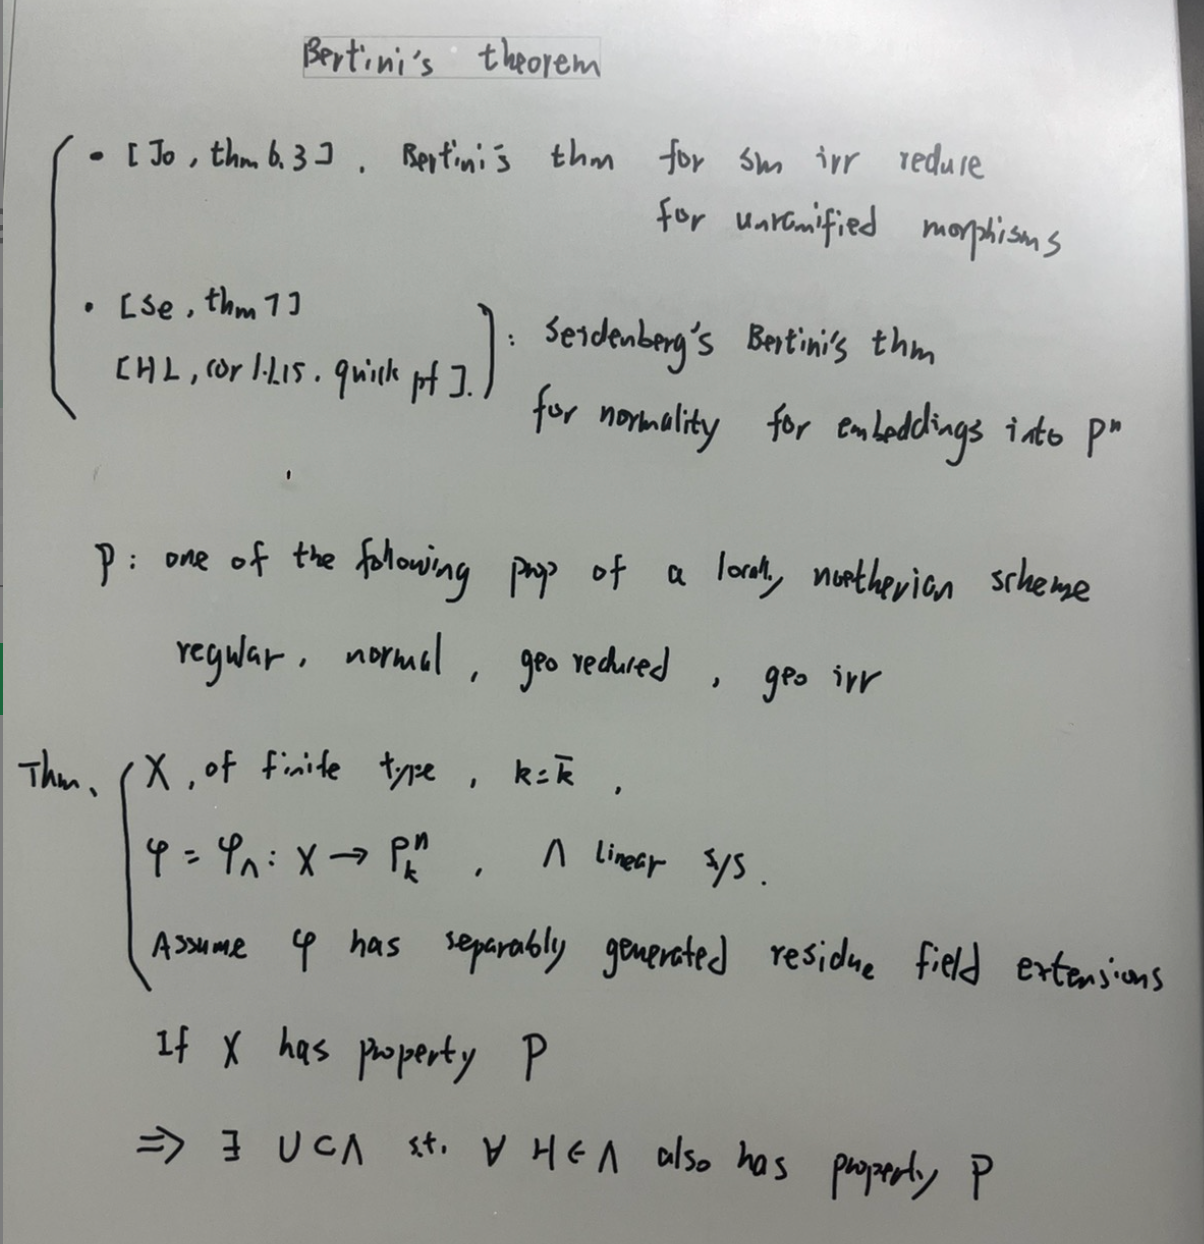 Bertini's theorem
• [Jo, thm 6.3]. Bertini's thm for sm irr reduce
for unramified morphisms
• [Se, thm 7]
[HL, cor 1.1.15. quick pf].
: Seidenberg's Bertini's thm
for normality for embeddings into Pⁿ
P: one of the following prop of a locally noetherian scheme
regular, normal, geo reduced, geo irr
Thm. X, of finite type, k = k̄,
φ = φ_Λ: X → P^n_k, Λ linear sys.
Assume φ has separably generated residue field extensions
If X has property P
⇒ ∃ U ⊂ Λ s.t. ∀ H ∈ Λ also has property P